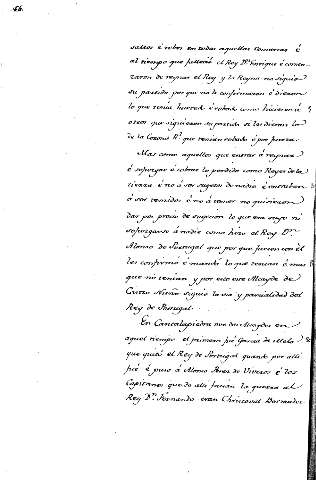 56.
saltos é robos en todas aquellas comarcas é
al tiempo que falleció el Rey Dn. Enrique é comen-
zaron de reynar el Rey y la Reyna no siguió
su partido por que no le confirmaron é dieron
lo que tenia hurtado é robado como hicieron á
otros que siguieron su partido se les dieron lo
de la Corona Rl. que tenian robado é por fuerza.
Mas como aquellos que entran á reynar
é sojuzgar é cobrar lo perdido como Reyes de la
tierra é no á ser sugetos de nadie é entraban
á ser temidos é no á temer no quisieron
dar por precio de sugecion lo que era suyo ni
sojuzgarse á nadie como hizo el Rey Dn.
Alonso de Portugal que por que fuesen con él
les confirmó é mandó lo que tenian é mas
que no tenian y por esto este Alcayde de
Castro Nuño siguió la via y parcialidad del
Rey de Portugal.
En Cantalapiedra tuvo dos Alcaydes en
aquel tiempo el primero fué Garcia de Melo
que quitó el Rey de Portugal quando por alli
fué é puso á Alonso Perez de Viveros é los
Capitanes que de alli facian la guerra al
Rey Dn. Fernando eran Christoval Bermudez